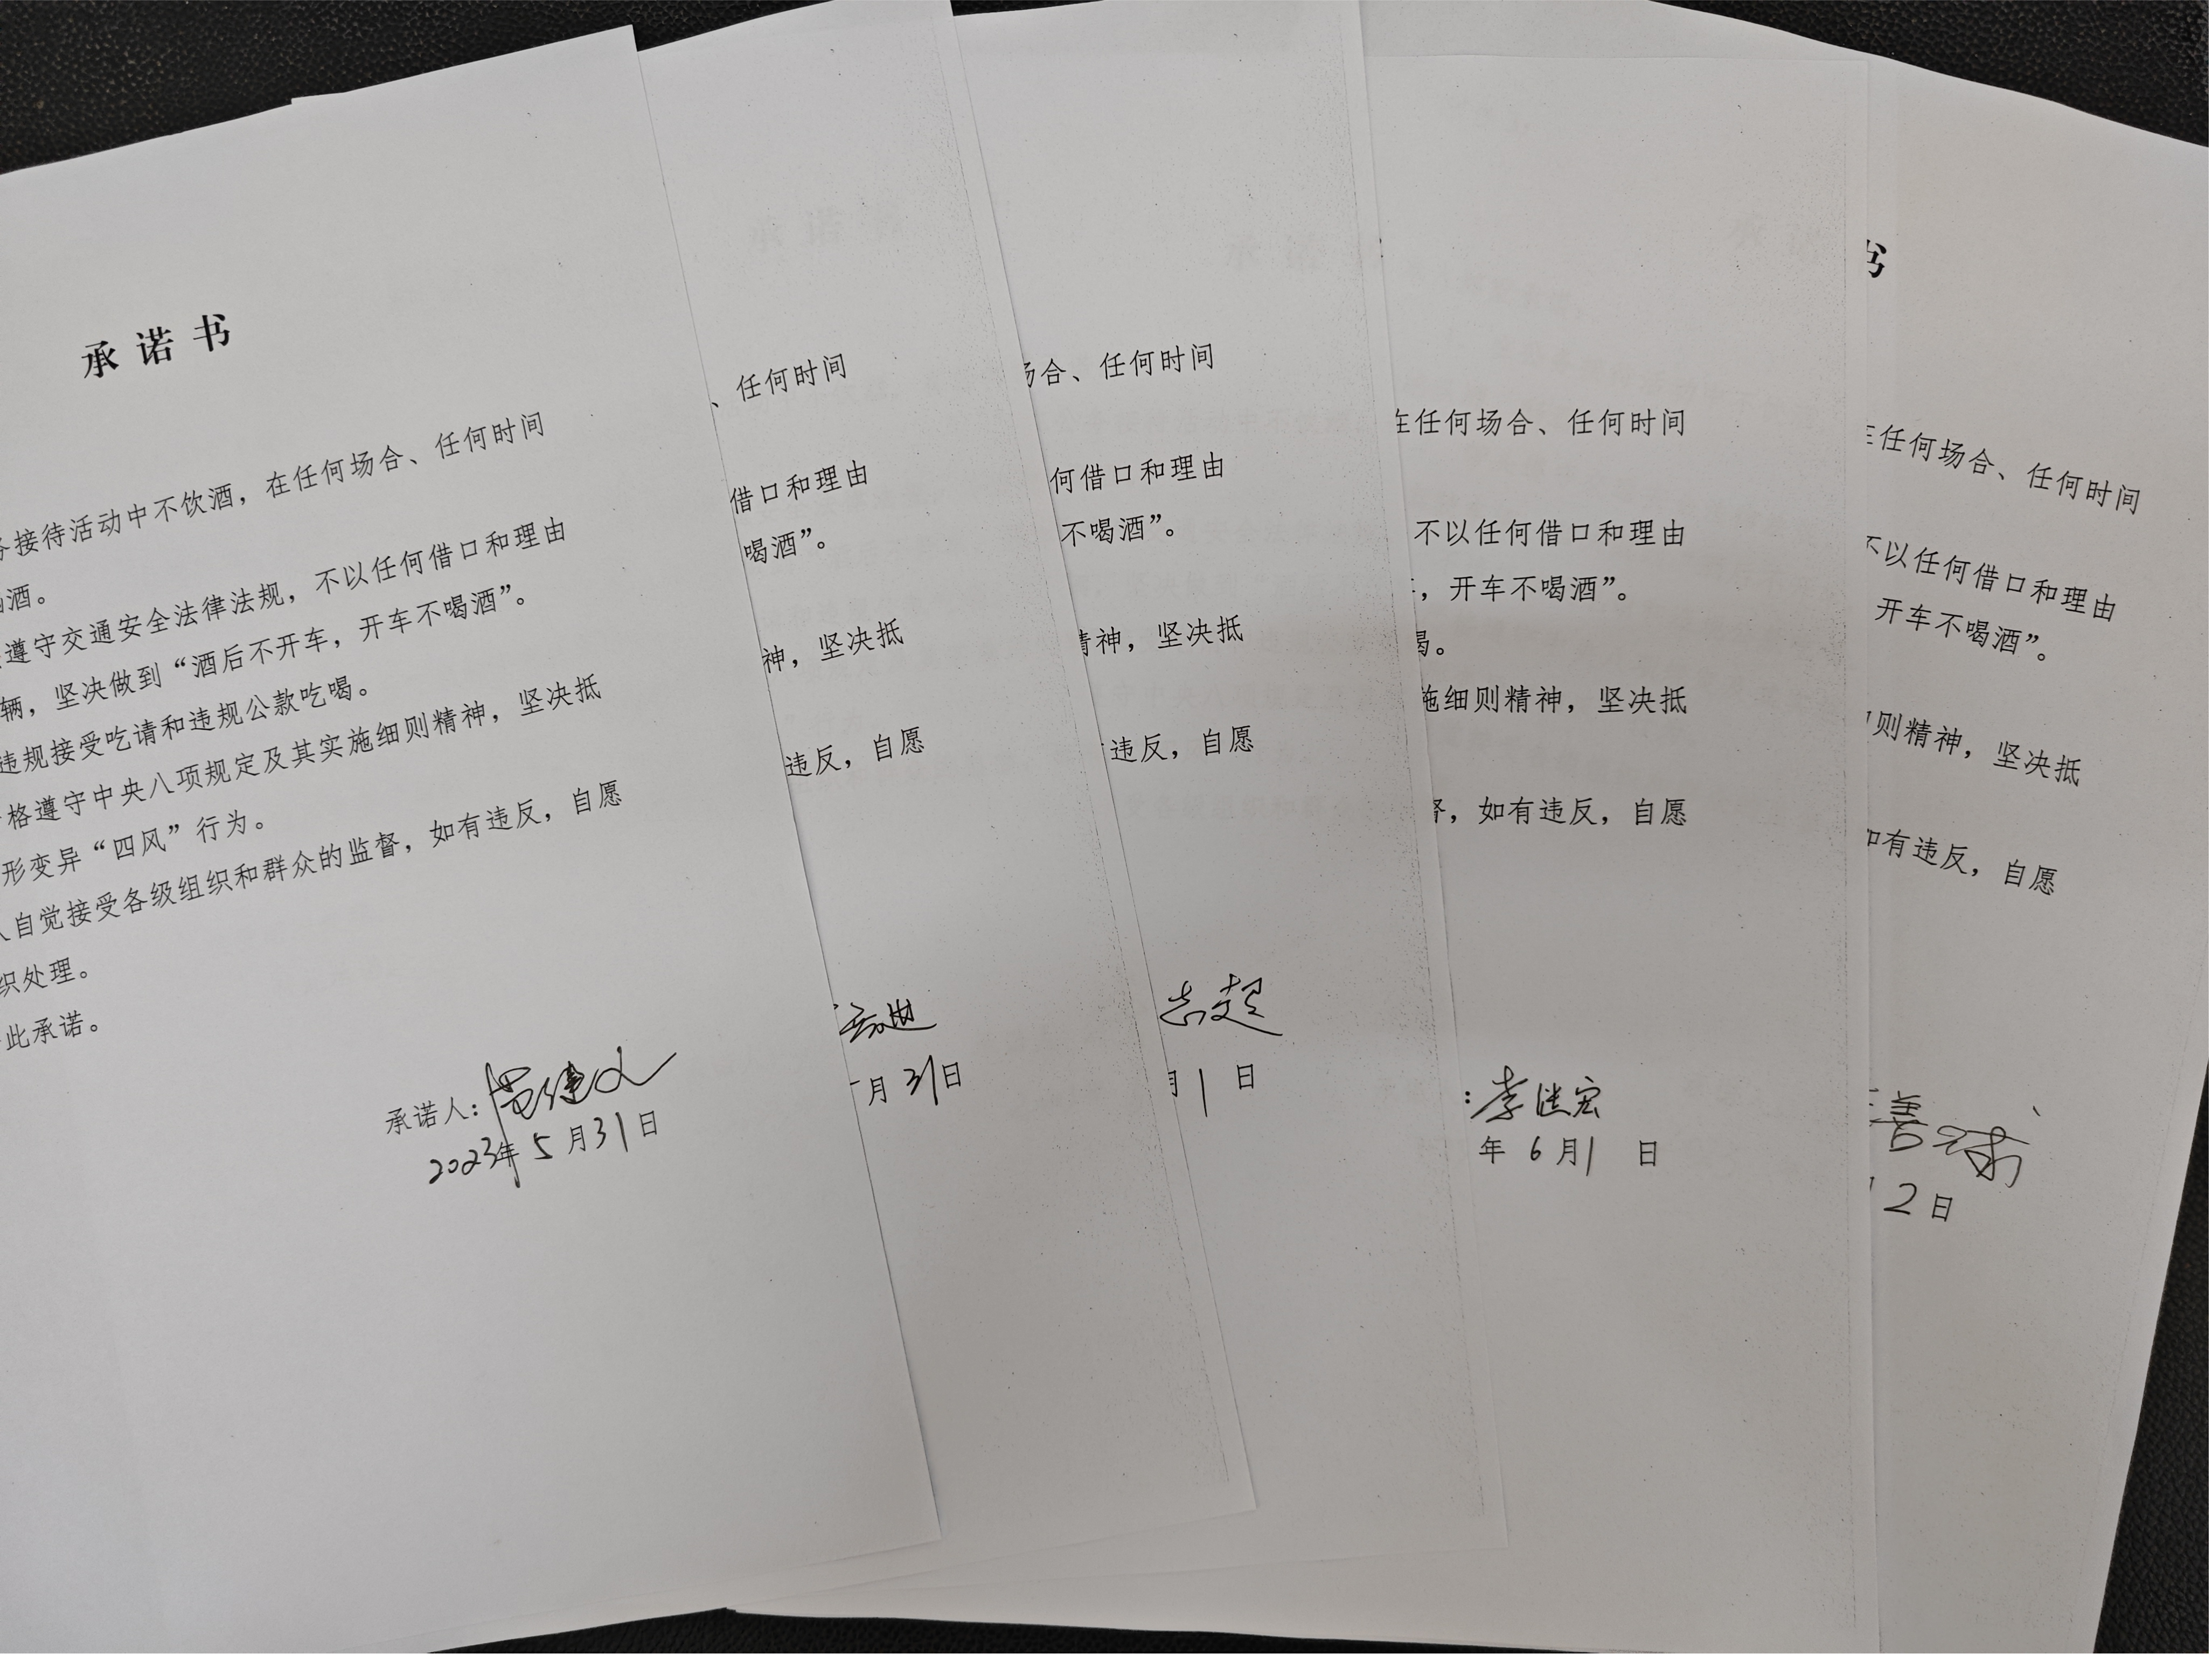 承诺书
接待活动中不饮酒，在任何场合、任何时间
酒。
遵守交通安全法律法规，不以任何借口和理由
辆，坚决做到“酒后不开车，开车不喝酒”。
违规接受吃请和违规公款吃喝。
格遵守中央八项规定及其实施细则精神，坚决抵
形变异“四风”行为。
人自觉接受各级组织和群众的监督，如有违反，自愿
织处理。
此承诺。
承诺人：
2023年5月31日
、任何时间
借口和理由
喝酒”。
神，坚决抵
违反，自愿
月31日
场合、任何时间
何借口和理由
不喝酒”。
精神，坚决抵
违反，自愿
志起
月1日
在任何场合、任何时间
不以任何借口和理由
，开车不喝酒”。
喝。
施细则精神，坚决抵
督，如有违反，自愿
：李继宏
年6月1日
书
在任何场合、任何时间
不以任何借口和理由
开车不喝酒”。
则精神，坚决抵
如有违反，自愿
善
2日